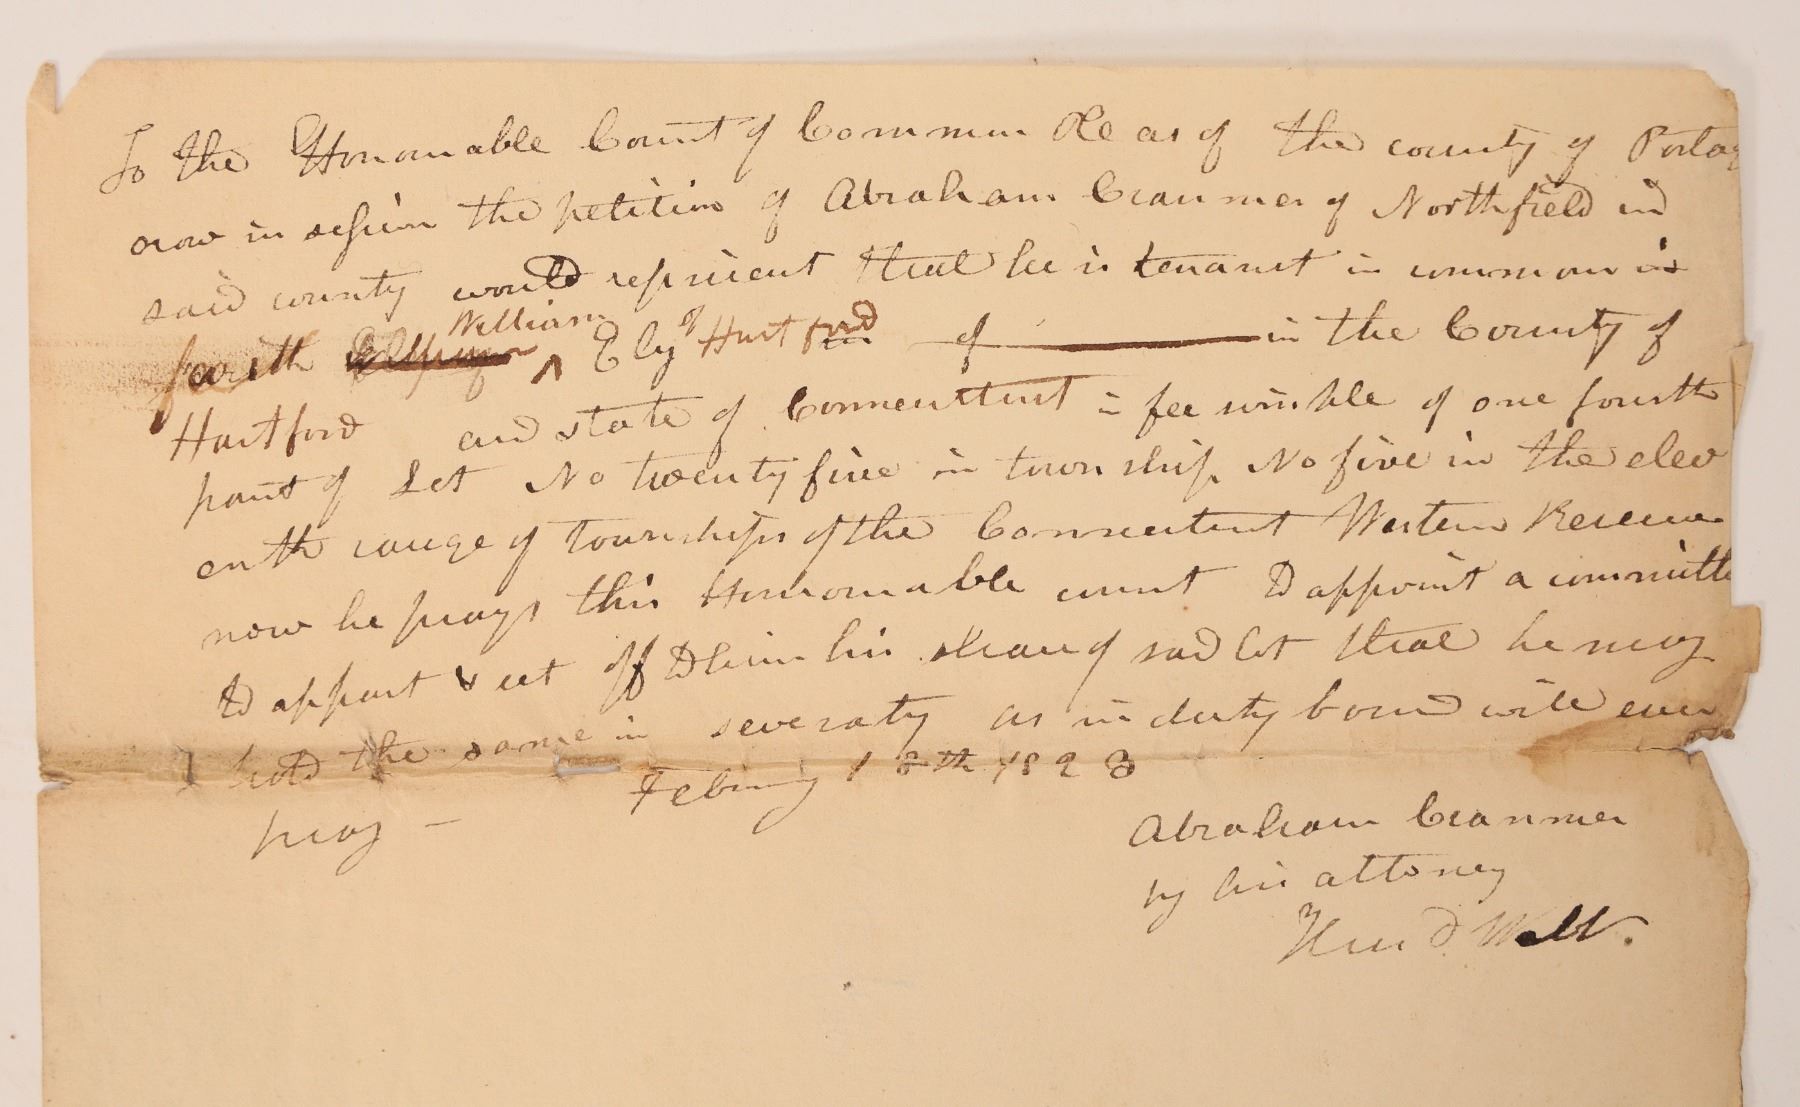 To the Honourable Court of Common Pleas of the county of Portag
now in session the petition of Abraham Cranmer of Northfield in
said county would represent that he is tenant in common in
William of
with Ely Hartford of in the County of
Hartford and state of Connecticut in fee simple of one fourth
part of Lot No twenty five in township No five in the elev
enth range of townships of the Connecticut Western Reserve
now he prays this Honourable court to appoint a committe
to appart & set off to him his share of said lot that he may
hold the same in severalty as in duty bound will ever
pray — February 18th 1823
Abraham Cranmer
by his attorney